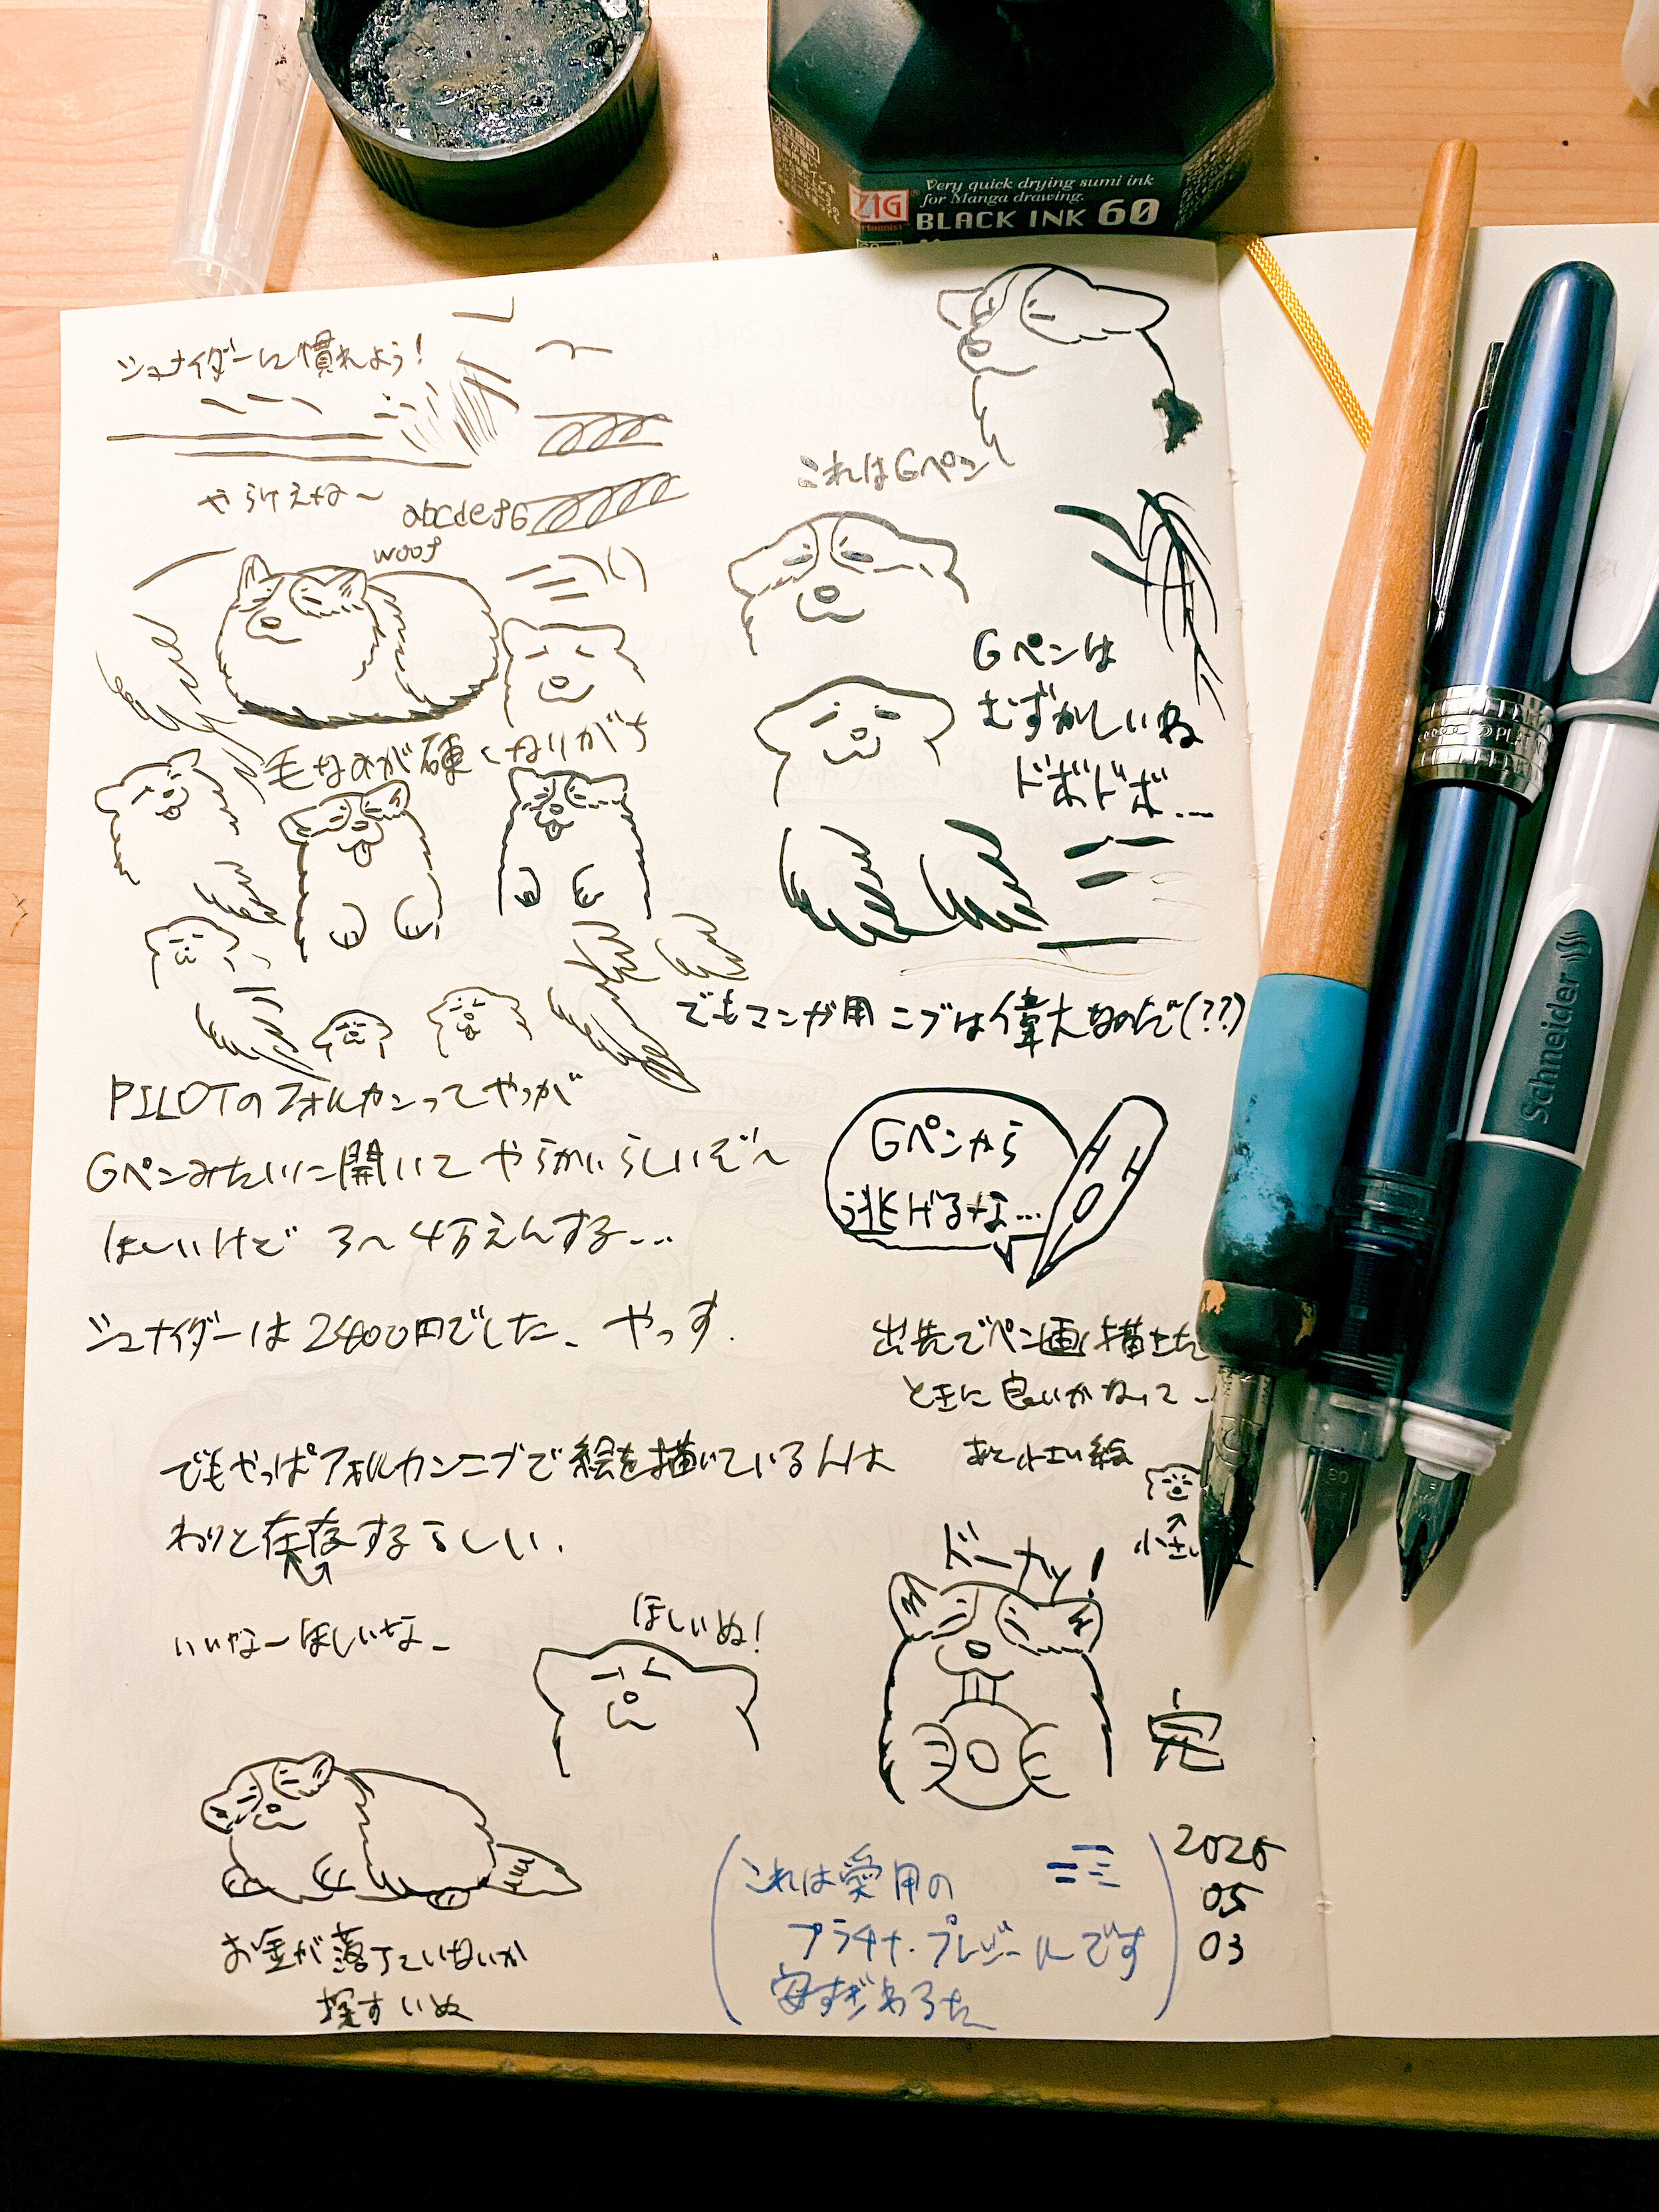 Very quick drying sumi ink
for Manga drawing.
ZIG
BLACK INK 60
シュナイダーに慣れよう!
やらけえな〜
abcdefG
woof
毛なみが硬くなりがち
これはGペン
Gペンは
むずかしいね
ドボドボ...
でもマンガ用ニブは偉大なのだ(??)
PILOTのフォルカンってやつが
Gペンみたいに開いてやらかいらしいぞ〜
ほしいけど 3〜4万えんする...
シュナイダーは2400円でした、やっす.
Gペンから
逃げるな...
出先でペン画描きた
ときに良いかなって
あと小さい絵
小さ
でもやっぱフォルカンニブで絵を描いている人は
わりと存在するらしい.
いいなーほしいなー
ほしいぬ!
ドーナッ!
完
お金が落ちていないか
探すいぬ
これは愛用の
プラチナ・プレジールです
安すぎわろた
2025
05
03
Schneider